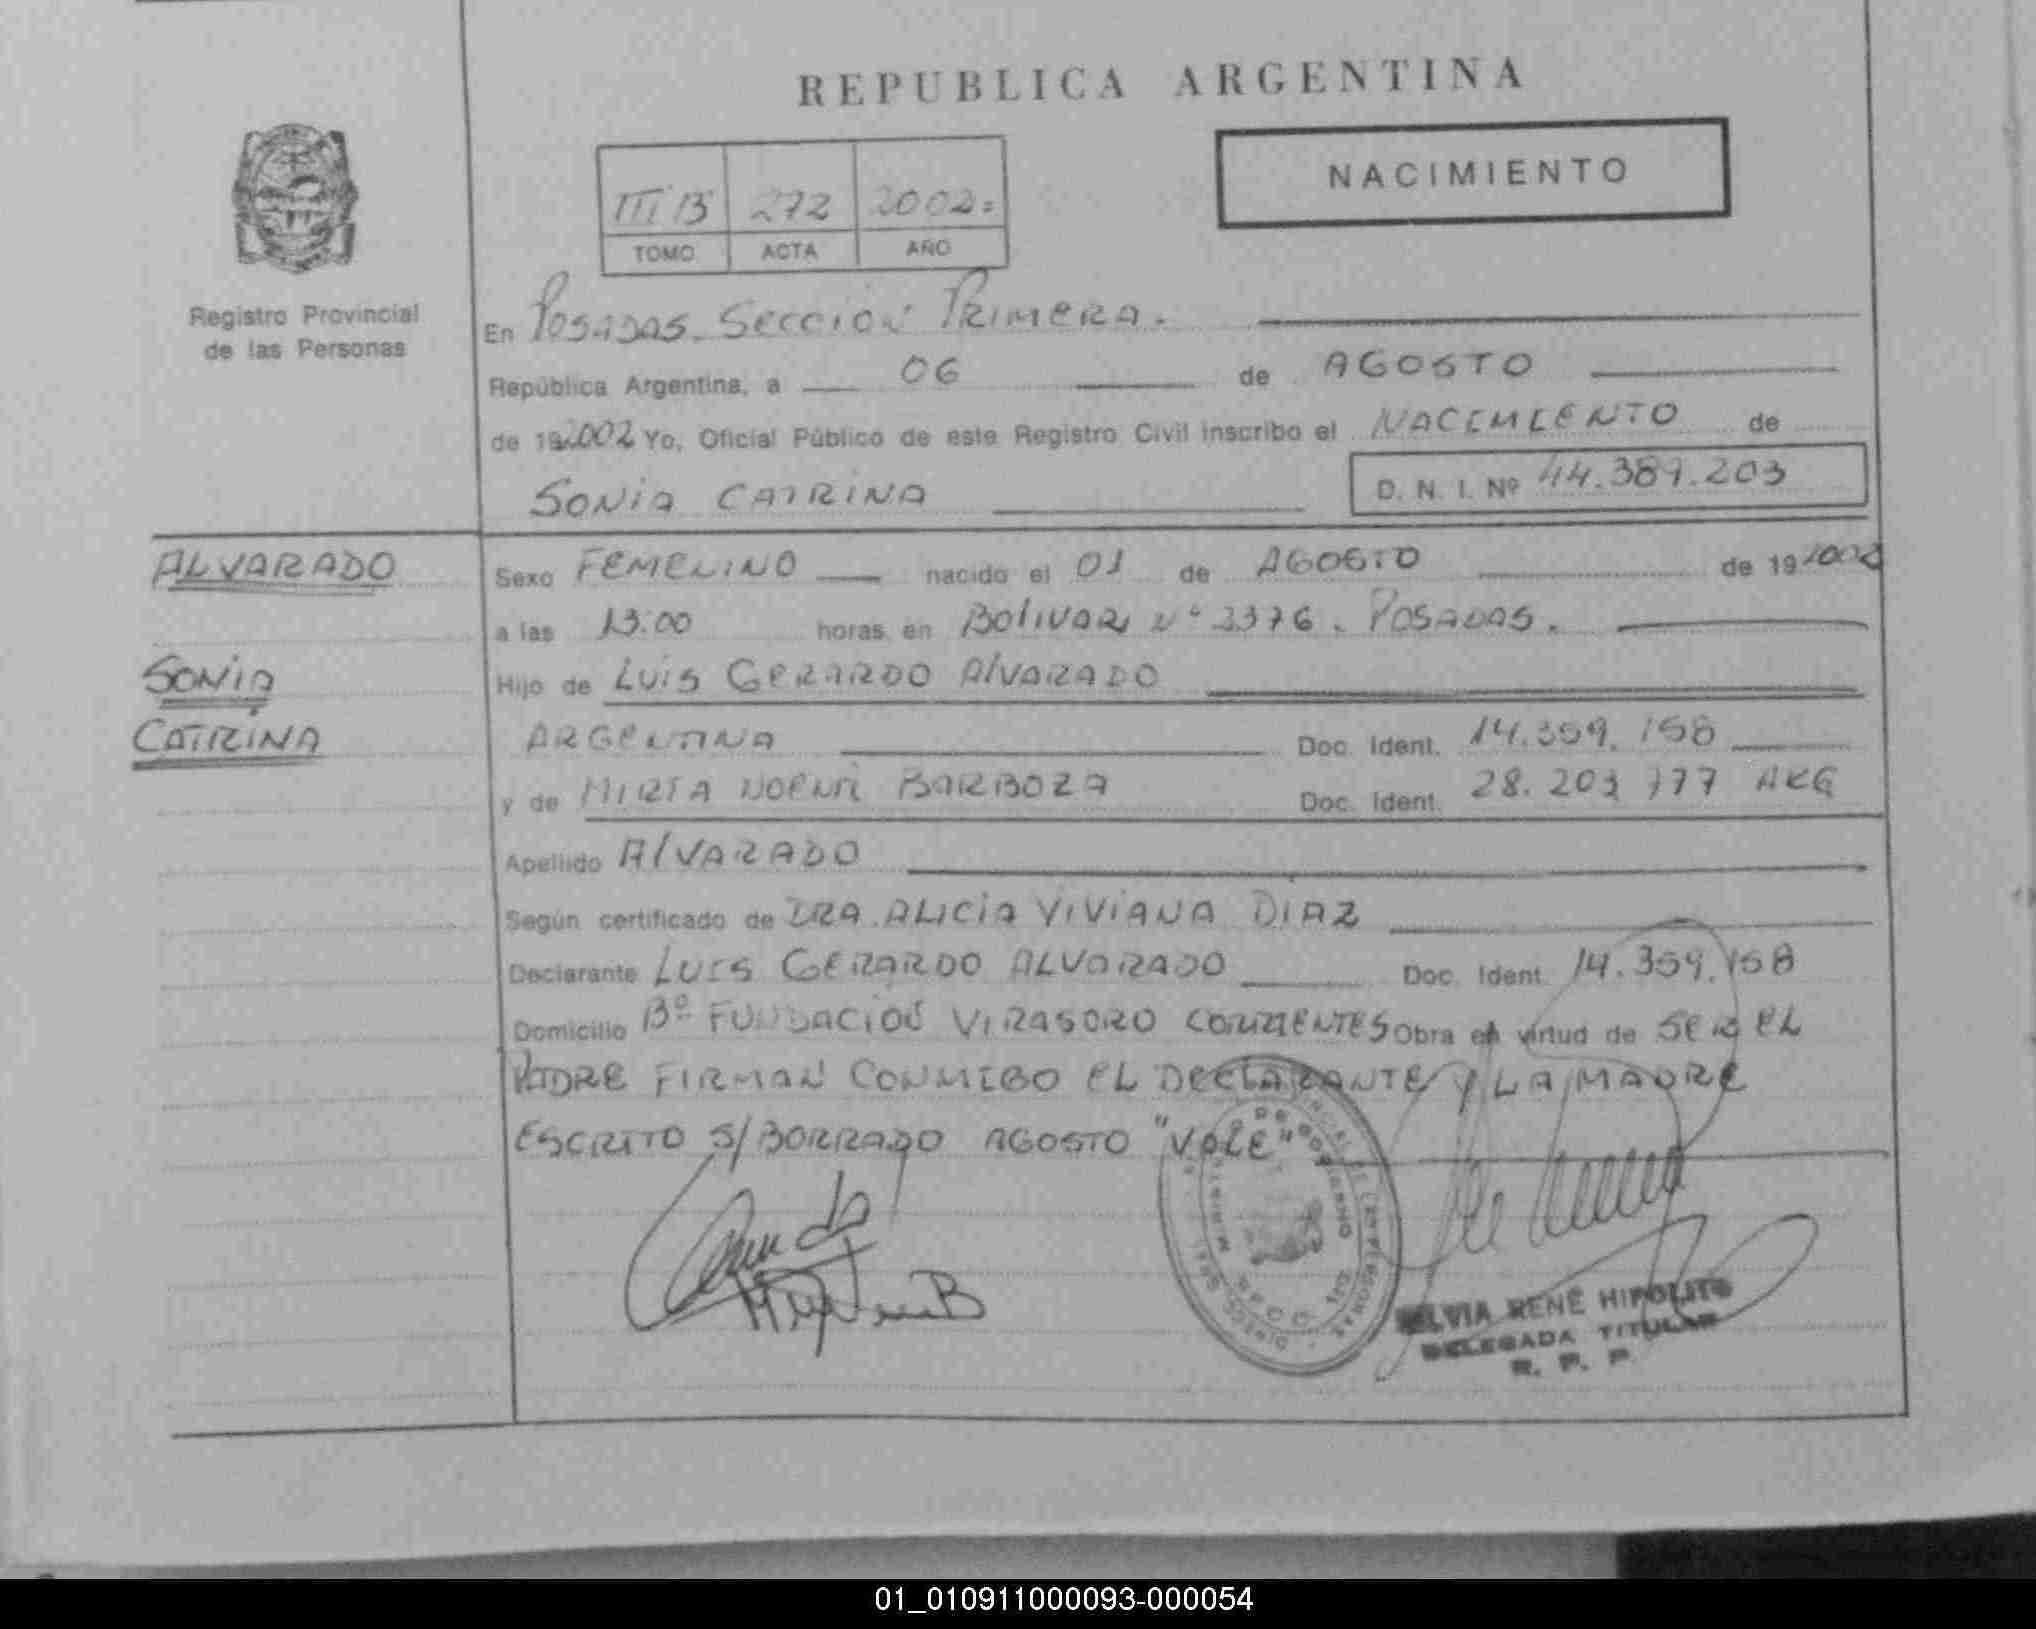 REPUBLICA ARGENTINA
NACIMIENTO
III B 272 2002=
TOMO ACTA AÑO
Registro Provincial
de las Personas
En POSADAS. SECCION PRIMERA.
República Argentina, a 06 de AGOSTO
de 19 2002 Yo, Oficial Público de este Registro Civil inscribo el NACIMIENTO de
SONIA CATRINA D. N. I. Nº 44.389.203
ALVARADO
SONIA
CATRINA
Sexo FEMENINO nacido el 01 de AGOSTO de 19 2002
a las 13:00 horas en BOLIVAR Nº 2376. POSADAS.
Hijo de LUIS GERARDO ALVARADO
ARGENTINA Doc. Ident. 14.359.158
y de MIRTA NOEMI BARBOZA Doc. Ident. 28.203 777 ARG
Apellido ALVARADO
Según certificado de DRA. ALICIA VIVIANA DIAZ
Declarante LUIS GERARDO ALVARADO Doc. Ident. 14.359.158
Domicilio Bº FUNDACION VIRASORO CORRIENTES Obra en virtud de SER EL
PADRE FIRMAN CONMIGO EL DECLARANTE Y LA MADRE
ESCRITO S/BORRADO AGOSTO "VALE"
SILVIA RENE HIPOLITO
DELEGADA TITULAR
R. P. P.
01_010911000093-000054